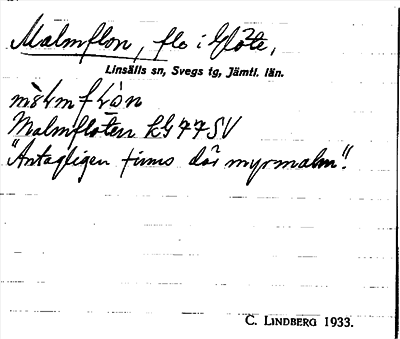 Malmflon, flo i Glöte,
Linsälls sn, Svegs tg, Jämtl. län.
Malmflöten kG 77 SV
"Antagligen finns där myrmalm".
C. LINDBERG 1933.